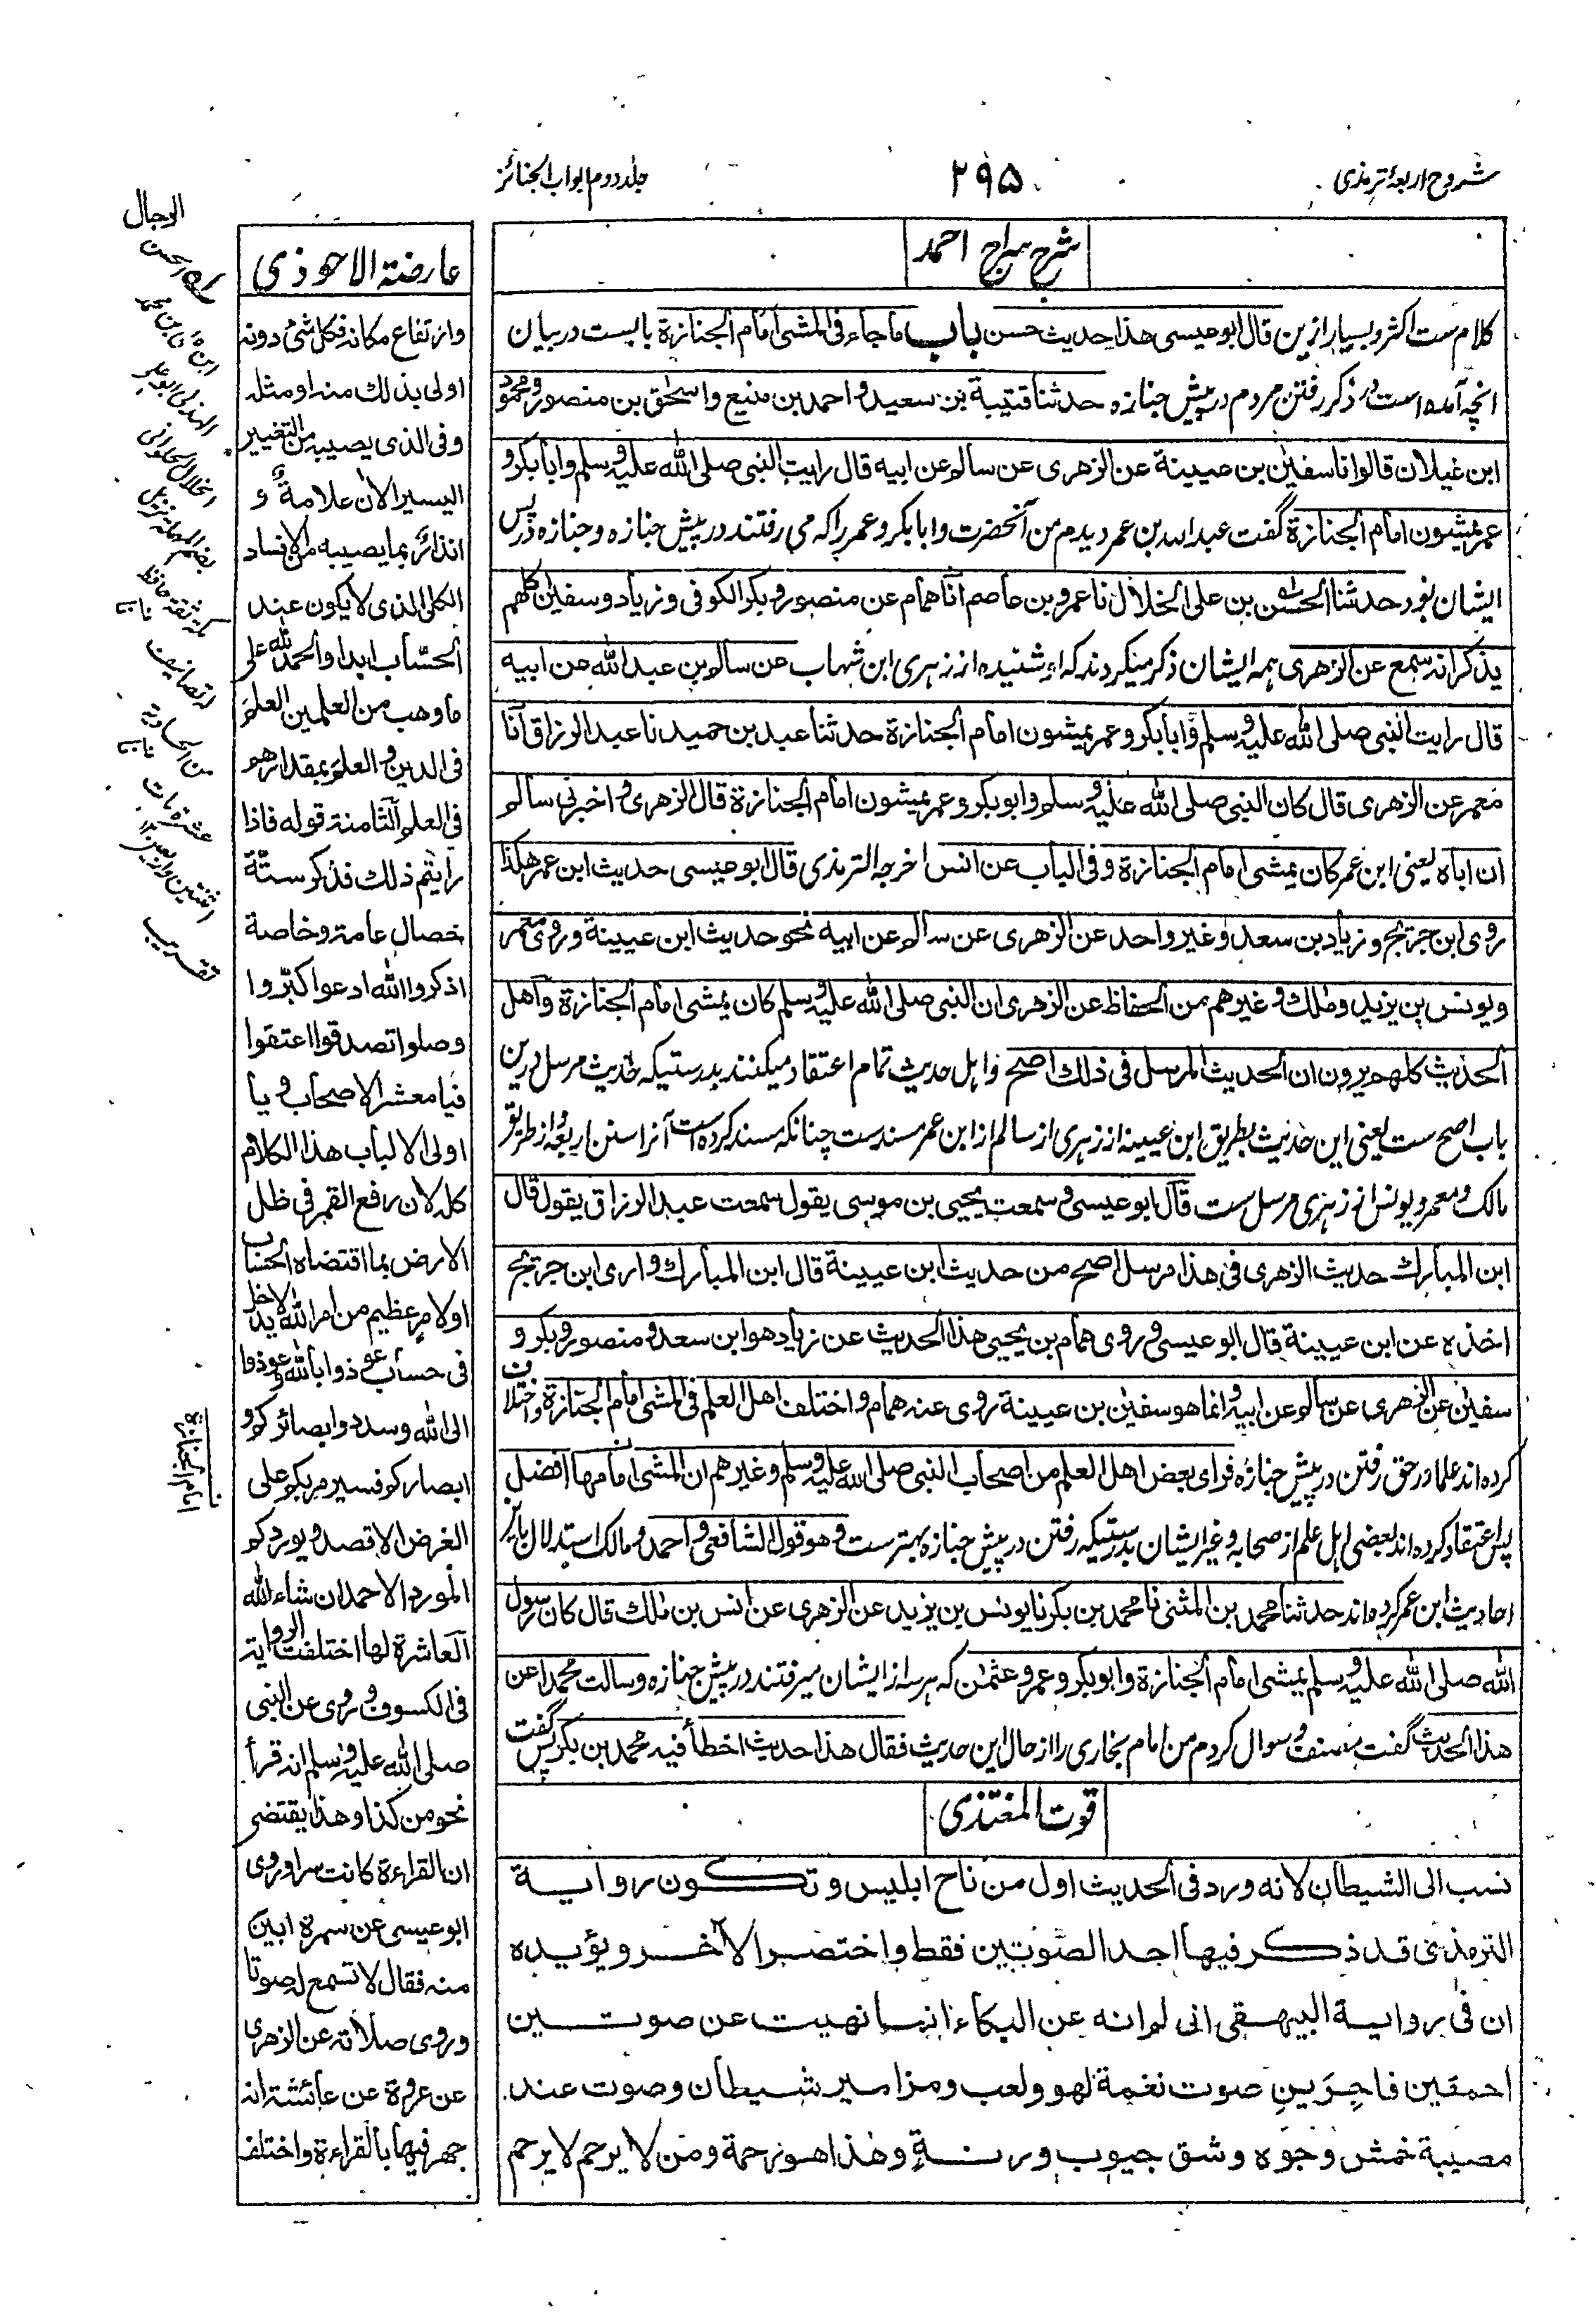 شروح اربعهٔ ترمذی
۲۹۵
جلد دوم ابواب الجنائز
شرح سراج احمد
کلام ست اکثر و بسیار ازین قال ابو عیسی هذا حدیث حسن باب ما جاء فی المشی امام الجنازة بابست در بیان
انچه آمده است در ذکر رفتن مردم در پیش جنازه حدثنا قتیبة بن سعید و احمد بن منیع و اسحٰق بن منصور و محمود
ابن غیلان قالوا نا سفیٰن بن عیینة عن الزهری عن سالم عن ابیه قال رایت النبی صلی الله علیه وسلم و ابا بکر و
عمر یمشون امام الجنازة گفت عبد الله بن عمر دیدم من آنحضرت و ابا بکر و عمر را که می رفتند در پیش جنازه و جنازه در پس
ایشان بود حدثنا الحسن بن علی الخلال نا عمرو بن عاصم انا همام عن منصور و بکر الکوفی و زیاد و سفیٰن کلهم
یذکر انه سمع عن الزهری همه ایشان ذکر میکردند که او شنیده از زهری ابن شهاب عن سالم بن عبد الله عن ابیه
قال رایت النبی صلی الله علیه وسلم و ابا بکر و عمر یمشون امام الجنازة حدثنا عبد بن حمید نا عبد الرزاق انا
معمر عن الزهری قال کان النبی صلی الله علیه وسلم و ابو بکر و عمر یمشون امام الجنازة قال الزهری و اخبرنی سالم
ان اباه یعنی ابن عمر کان یمشی امام الجنازة و فی الباب عن انس اخرجه الترمذی قال ابو عیسی حدیث ابن عمر هکذا
روی ابن جریج و زیاد بن سعد و غیر واحد عن الزهری عن سالم عن ابیه نحو حدیث ابن عیینة و روی معمر
و یونس بن یزید و مٰلک و غیرهم من الحفاظ عن الزهری ان النبی صلی الله علیه وسلم کان یمشی امام الجنازة و اهل
الحدیث کلهم یرون ان الحدیث المرسل فی ذلک اصح و اهل حدیث تمام اعتقاد میکنند بدرستیکه حدیث مرسل درین
باب اصح ست یعنی این حدیث بطریق ابن عیینه از زهری از سالم از ابن عمر مسند ست چنانکه مسند کرده است آنرا سنن اربعه و از طریق
مالک و معمر و یونس از زهری مرسل ست قال ابو عیسی و سمعت یحیی بن موسی یقول سمعت عبد الرزاق یقول قال
ابن المبارک حدیث الزهری فی هذا مرسل اصح من حدیث ابن عیینة قال ابن المبارک و اری ابن جریج
اخذه عن ابن عیینة قال ابو عیسی و روی همام بن یحیی هذا الحدیث عن زیاد هو ابن سعد و منصور و بکر و
سفیٰن عن الزهری عن سالم عن ابیه و انما هو سفیٰن بن عیینة روی عنه همام و اختلف اهل العلم فی المشی امام الجنازة و اختلاف
کرده اند علما در حق رفتن در پیش جنازه فرای بعض اهل العلم من اصحاب النبی صلی الله علیه وسلم و غیرهم ان المشی امامها افضل
پس اعتقاد کرده اند بعضی اهل علم از صحابه و غیر ایشان بدرستیکه رفتن در پیش جنازه بهتر ست و هو قول الشافعی و احمد و مالک استدلال باین
احادیث ابن عمر کرده اند حدثنا محمد بن المثنی نا محمد بن بکر نا یونس بن یزید عن الزهری عن انس بن مٰلک قال کان رسول
الله صلی الله علیه وسلم یمشی امام الجنازة و ابو بکر و عمر و عثمٰن که هر سه از ایشان میرفتند در پیش جنازه و سالت محمدا عن
هذا الحدیث گفت مصنف و سوال کردم من امام بخاری را از حال این حدیث فقال هذا حدیث اخطأ فیه محمد بن بکر پس گفت
قوت المغتذی
نسب الی الشیطان لانه ورد فی الحدیث اول من ناح ابلیس و تکون روایة
الترمذی قد ذکر فیها احد الصوتین فقط و اختصر الآخر و یؤیده
ان فی روایة البیهقی انی لم انه عن البکاء انما نهیت عن صوتین
احمقین فاجرین صوت نغمة لهو و لعب و مزامیر شیطان و صوت عند
مصیبة خمش وجوه و شق جیوب و رنة و هٰذا هو رحمة و من لا یرحم لا یرحم
عارضة الاحوذی
وارتفاع مکانه فکل شئ دونه
اولی بذلک منه او مثله
و فی الذی یصیبه من التغییر
الیسیر الآن علامة و
انذار بما یصیبه من الافساد
الکلی الذی لا یکون عند
الحسّاب ابدا و الحمد لله علی
ما وهب من العلمین العلم
فی الدین و العلم بمقدار هو
فی العلم الثامنة قوله فاذا
رایتم ذلک فذکر ستة
خصال عامة و خاصة
اذکروا الله ادعوا کبّروا
و صلوا تصدقوا اعتقوا
فیا معشر الاصحاب و یا
اولی الالباب هذا الکلام
کله لان رفع القمر فی ظل
الارض بما اقتضاه الحساب
او لامر عظیم من امر الله لا یدخل
فی حساب عوذوا بالله و عوذوا
الی الله و سددوا بصائرکم و
ابصارکم فسیر مرکبکم علی
الغرض الاقصد و یوردکم
المورد الاحمد ان شاء الله
العاشرة لها اختلفت الروایة
فی الکسوف و روی عن النبی
صلی الله علیه وسلم انه قرأ
نحو من کذا و هذا یقتضی
ان القراءة کانت سرا و روی
ابو عیسی عن سمرة ابین
منه فقال لا تسمع له صوتا
و روی صلاته عن الزهری
عن عروة عن عائشة انه
جهر فیها بالقراءة و اختلف
الرجال
الحسن
ابن علی بن محمد
الهذلی ابو علی
الخلال الحلوانی
بضم المهملة نزیل
مکة ثقة حافظ
له تصانیف
من الحادیة عشرة مات
اثنتین و اربعین
تقریب
امام الجنازة